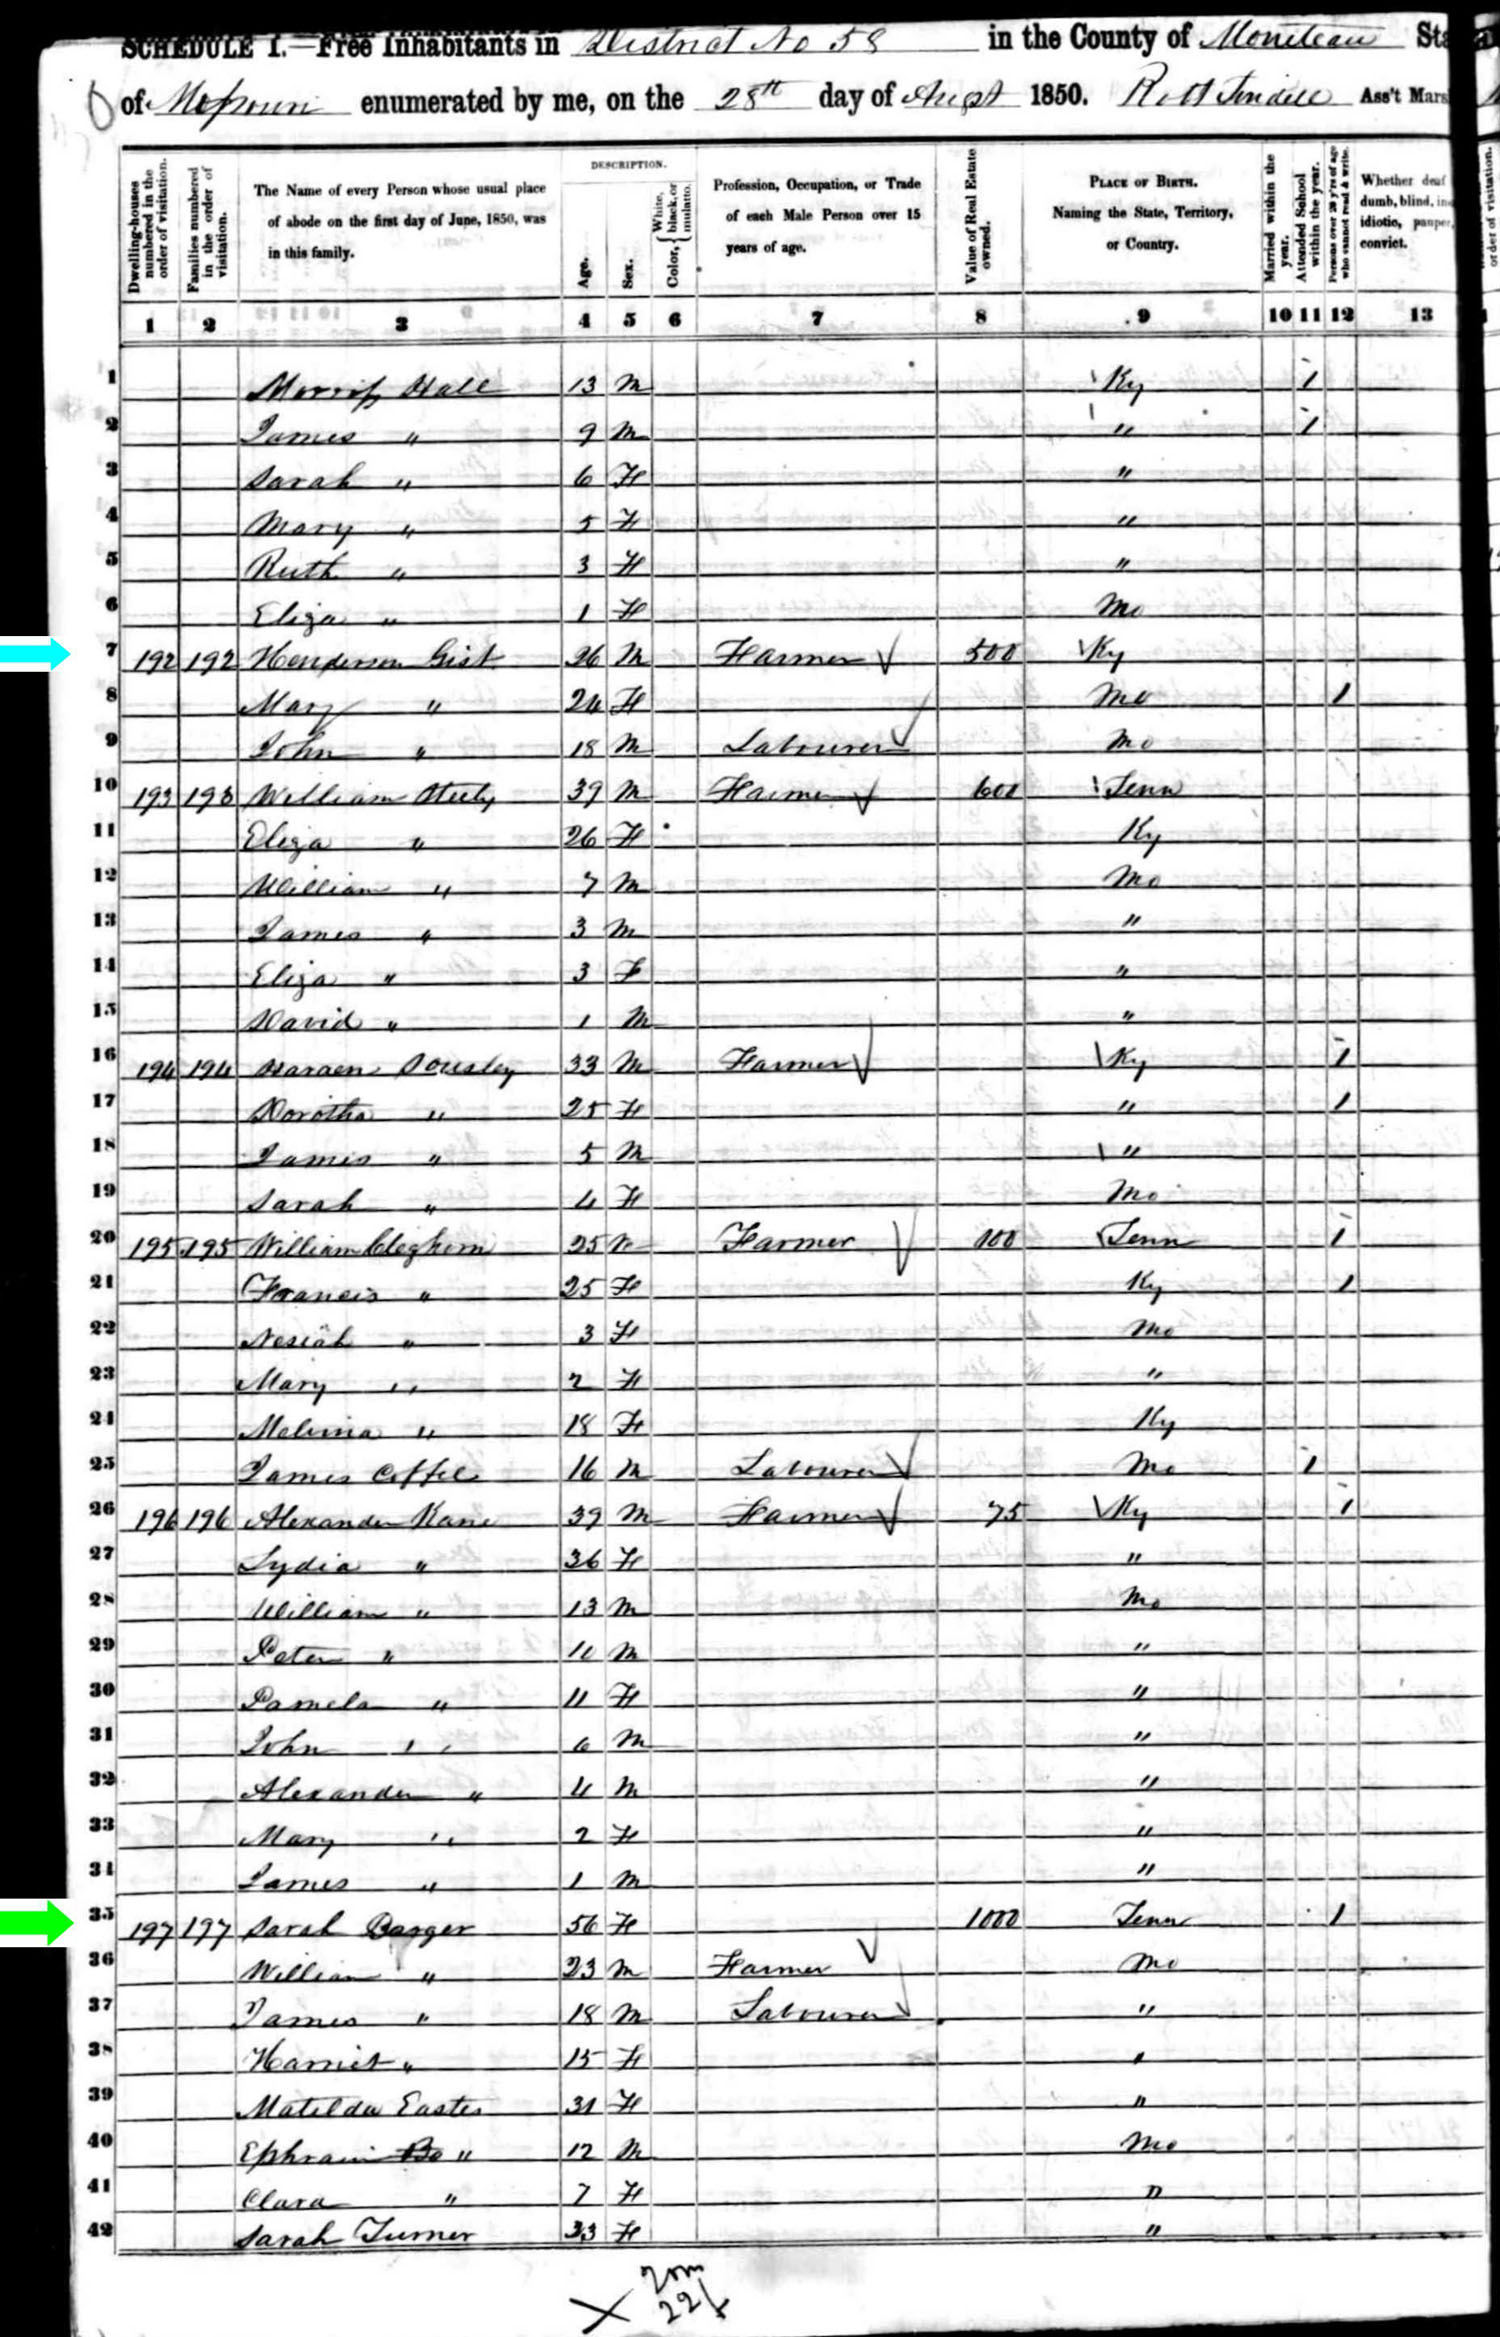 SCHEDULE I.—Free Inhabitants in District No 58 in the County of Moniteau Sta
of Missouri enumerated by me, on the 28th day of Augst 1850. Ass't Mars
Dwelling-houses numbered in the order of visitation.
Families numbered in the order of visitation.
The Name of every Person whose usual place of abode on the first day of June, 1850, was in this family.
DESCRIPTION.
Age.
Sex.
Color, { White, black, or mulatto.
Profession, Occupation, or Trade of each Male Person over 15 years of age.
Value of Real Estate owned.
PLACE OF BIRTH. Naming the State, Territory, or Country.
Married within the year.
Attended School within the year.
Persons over 20 y'rs of age who cannot read & write.
Whether deaf dumb, blind, in idiotic, pauper, convict.
order of visitation.
1 2 3 4 5 6 7 8 9 10 11 12 13
1 Morris Hall 13 M Ky 1
2 James " 9 M " 1
3 Sarah " 6 F "
4 Mary " 5 F "
5 Ruth " 3 F "
6 Eliza " 1 F Mo
7 192 192 Henderson Gist 26 M Farmer 500 Ky
8 Mary " 24 F Mo 1
9 John " 18 M Labourer Mo
10 193 193 William Steely 39 M Farmer 600 Tenn
11 Eliza " 26 F Ky
12 William " 7 M Mo
13 James " 3 M "
14 Eliza " 3 F "
15 David " 1 M "
16 194 194 33 M Farmer Ky 1
17 Dorotha " 25 F " 1
18 James " 5 M "
19 Sarah " 4 F Mo
20 195 195 William Cleghorn 25 M Farmer 100 Tenn 1
21 Francis " 25 F Ky 1
22 Nesiah " 3 F Mo
23 Mary " 2 F "
24 Melvina " 18 F Ky
25 James Coffee 16 M Labourer Mo 1
26 196 196 Alexander Kane 39 M Farmer 75 Ky 1
27 Lydia " 36 F "
28 William " 13 M Mo
29 Peter " 10 M "
30 Pamela " 11 F "
31 John " 6 M "
32 Alexander " 4 M "
33 Mary " 2 F "
34 James " 1 M "
35 197 197 Sarah Barger 56 F 1000 Tenn 1
36 William " 23 M Farmer Mo
37 James " 18 M Labourer "
38 Harriet " 15 F "
39 Matilda Eastes 31 F "
40 Ephraim " 12 M Mo
41 Clara " 7 F "
42 Sarah Turner 33 F "
20m
22f